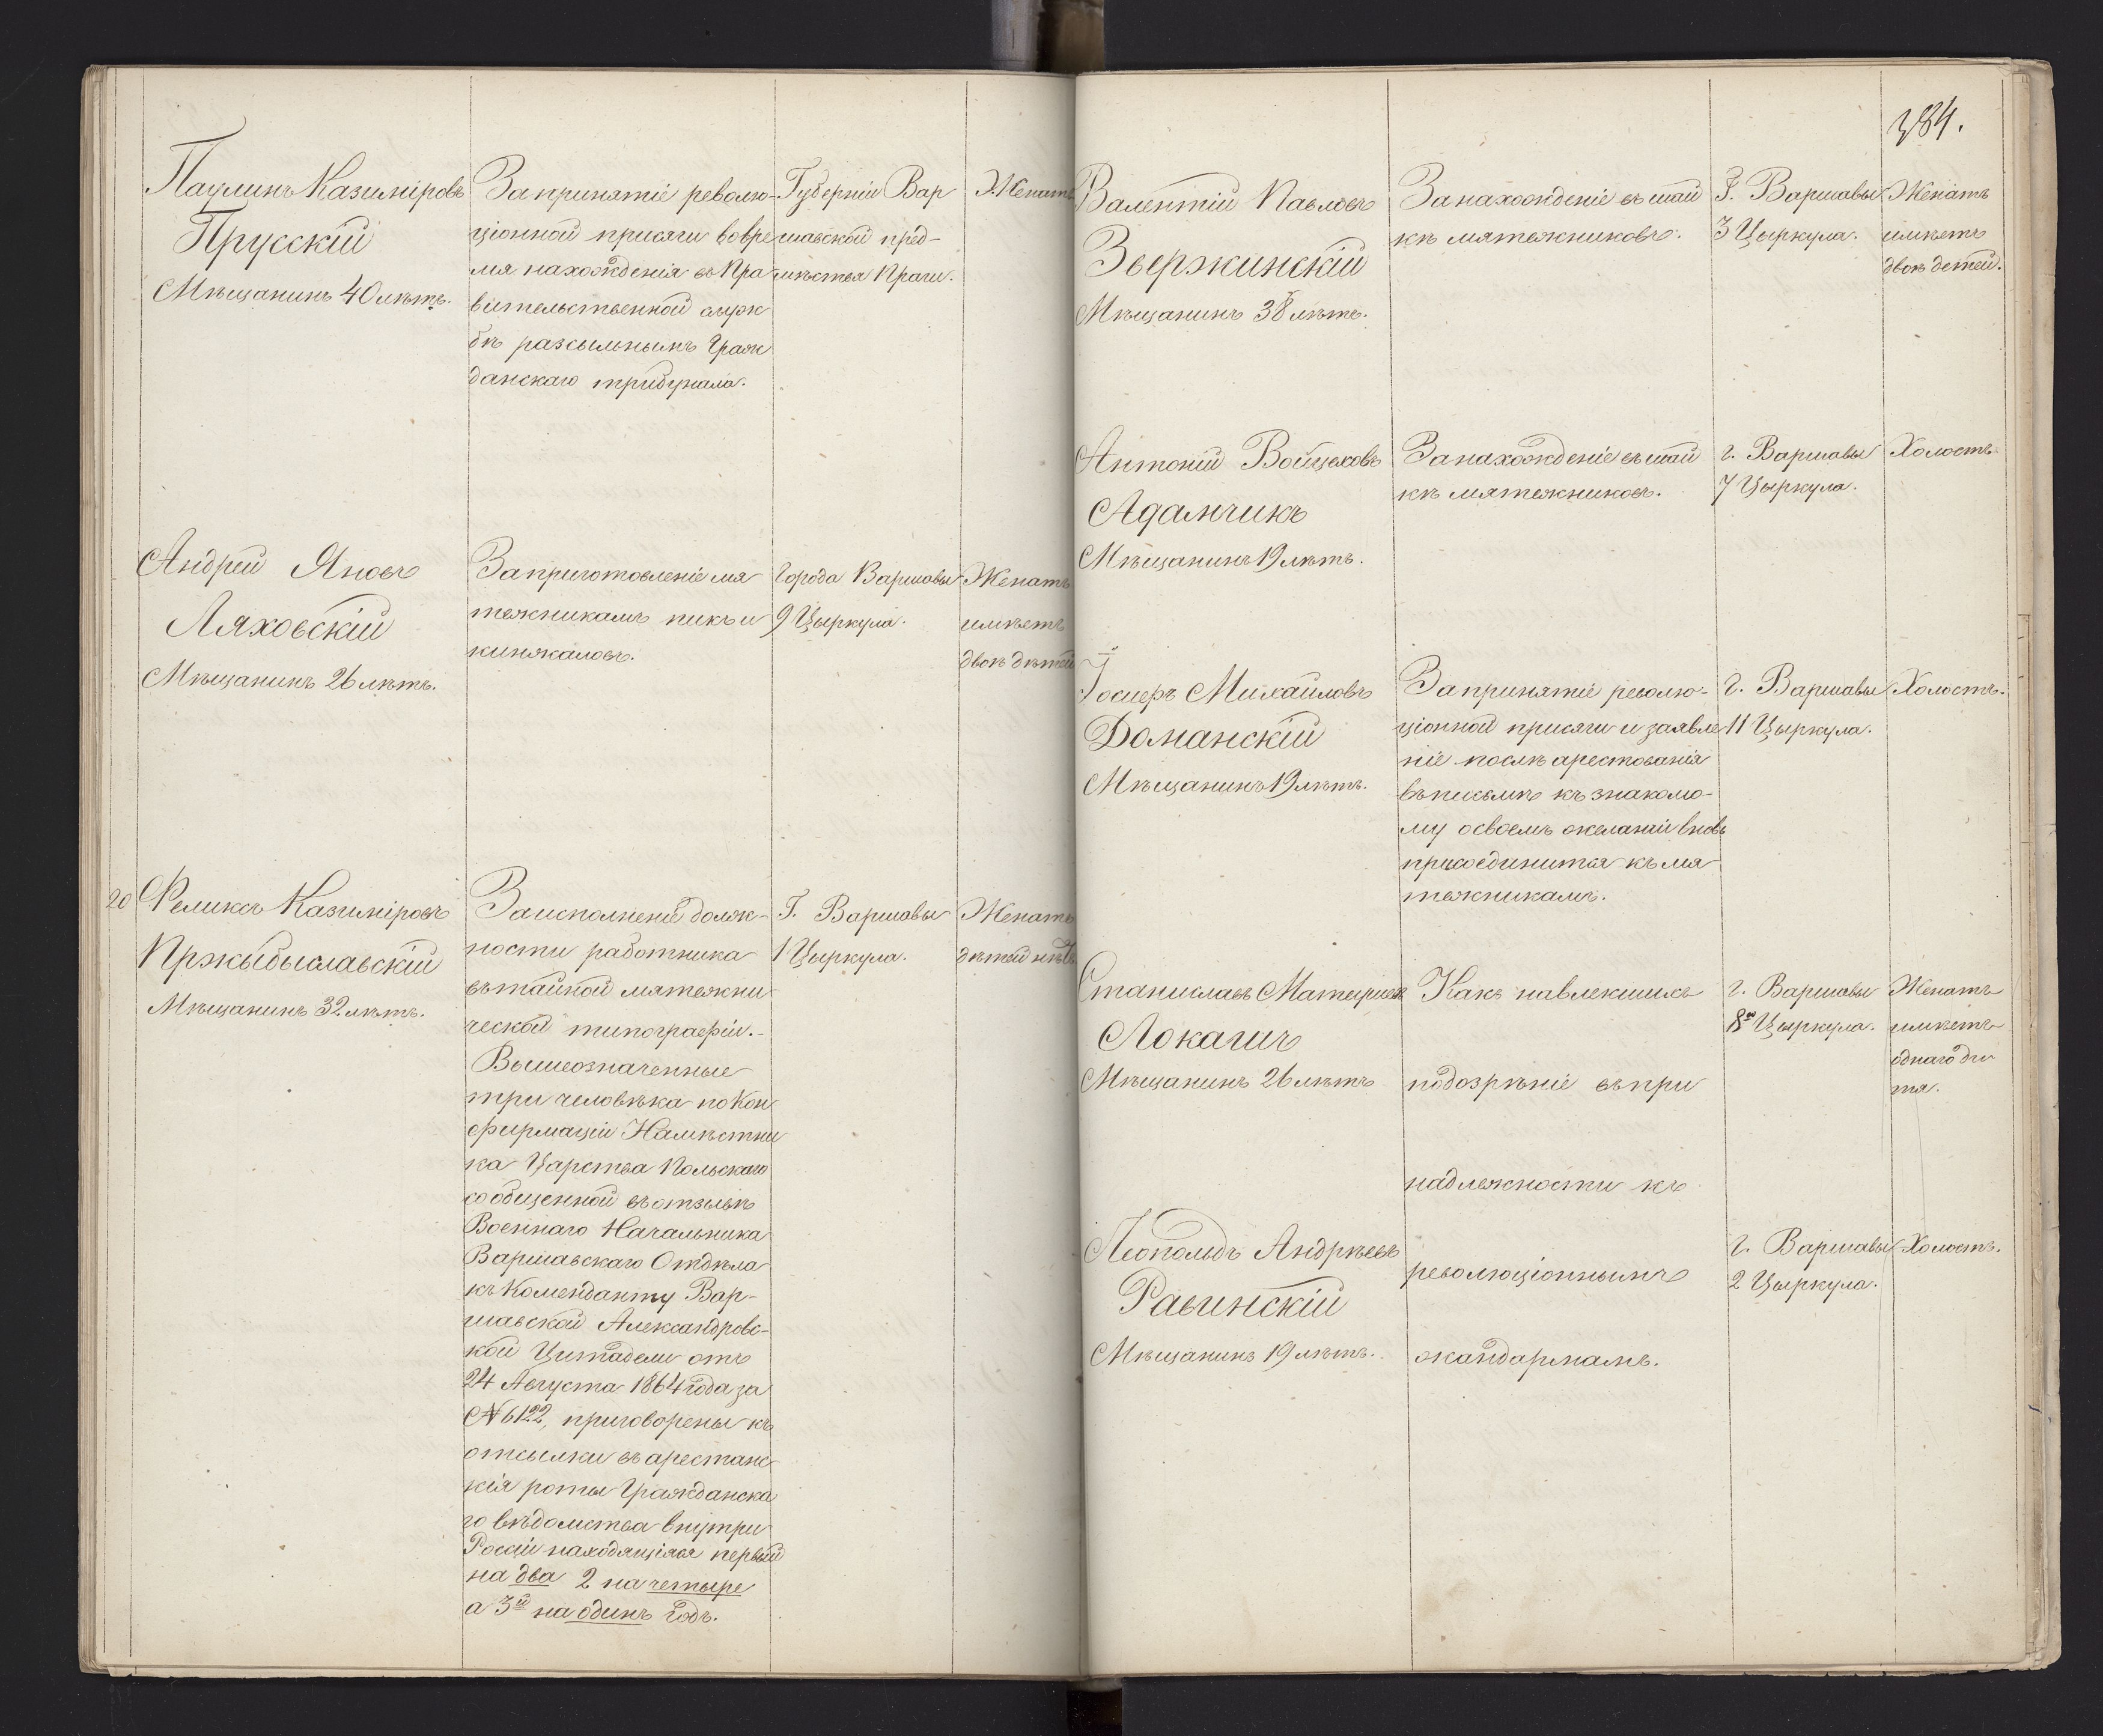 Паулинъ Казиміровъ
Прусскій
Мѣщанинъ 40 лѣтъ.
За принятіе револю-
ціонной присяги вовре
мя нахожденія въ Пра
вительственной служ
бѣ разсыльнымъ Граж
данскаго трибунала.
Губерніи Вар
шавской пред-
мѣстья Праги.
Женатъ
Андрей Яновъ
Ляховскій
Мѣщанинъ 26 лѣтъ.
За приготовленіе мя
тежникамъ пикъ и
кинжаловъ.
Города Варшавы
9 Цыркула.
Женатъ
имѣетъ
двое дѣтей
20 Феликсъ Казиміровъ
Пржыбыславскій
Мѣщанинъ 32 лѣтъ.
За исполненіе долж-
ности работника
въ тайной мятежни
ческой типографіи.-
Вышеозначенные
три человѣка по Кон
фирмаціи Намѣстни
ка Царства Польскаго
сообщенной въ отзывѣ
Военнаго Начальника
Варшавскаго Отдѣла
къ Коменданту Вар-
шавской Александровс-
кой Цитадели отъ
24 Августа 1864 года за
№ 6122, приговорены къ
отсылки въ арестанс-
кія роты Гражданска
го вѣдомства внутри
Россіи находящіяся первый
на два 2 на четыре
а 3й на одинъ годъ.
Г. Варшавы
1 Цыркула.
Женатъ
дѣтей нѣтъ
384.
Валентій Павловъ
Звержинскій
Мѣщанинъ 38 лѣтъ.
За нахожденіе въ шай
кѣ мятежниковъ.
Г. Варшавы
3 Цыркула.
Женатъ
имѣетъ
двое детей.
Антоній Войцеховъ
Адамчикъ
Мѣщанинъ 19 лѣтъ.
За нахожденіе въ шай
кѣ мятежниковъ.
г. Варшавы
7 Цыркула.
Холостъ.
Іосиеръ Михайловъ
Доманскій
Мѣщанинъ 19 лѣтъ.
За принятіе револю-
ціонной присяги и заявле
ніе послѣ арестованія
въ письмѣ къ знакомо-
му о своемъ желаніи вновь
присоединится къ мя
тежникамъ.
г. Варшавы
11 Цыркула.
Холостъ.
Станиславъ
Локагичъ
Мѣщанинъ 26 лѣтъ
Какъ навлекшихъ
подозрѣніе въ при
надлежности къ
революціоннымъ
жандармамъ.
г. Варшавы
8го Цыркула.
Женатъ
имѣетъ
однаго ди
тя.
Леопольдъ Андрѣевъ
Равинскій
Мѣщанинъ 19 лѣтъ.
г. Варшавы
2 Цыркула.
Холостъ.